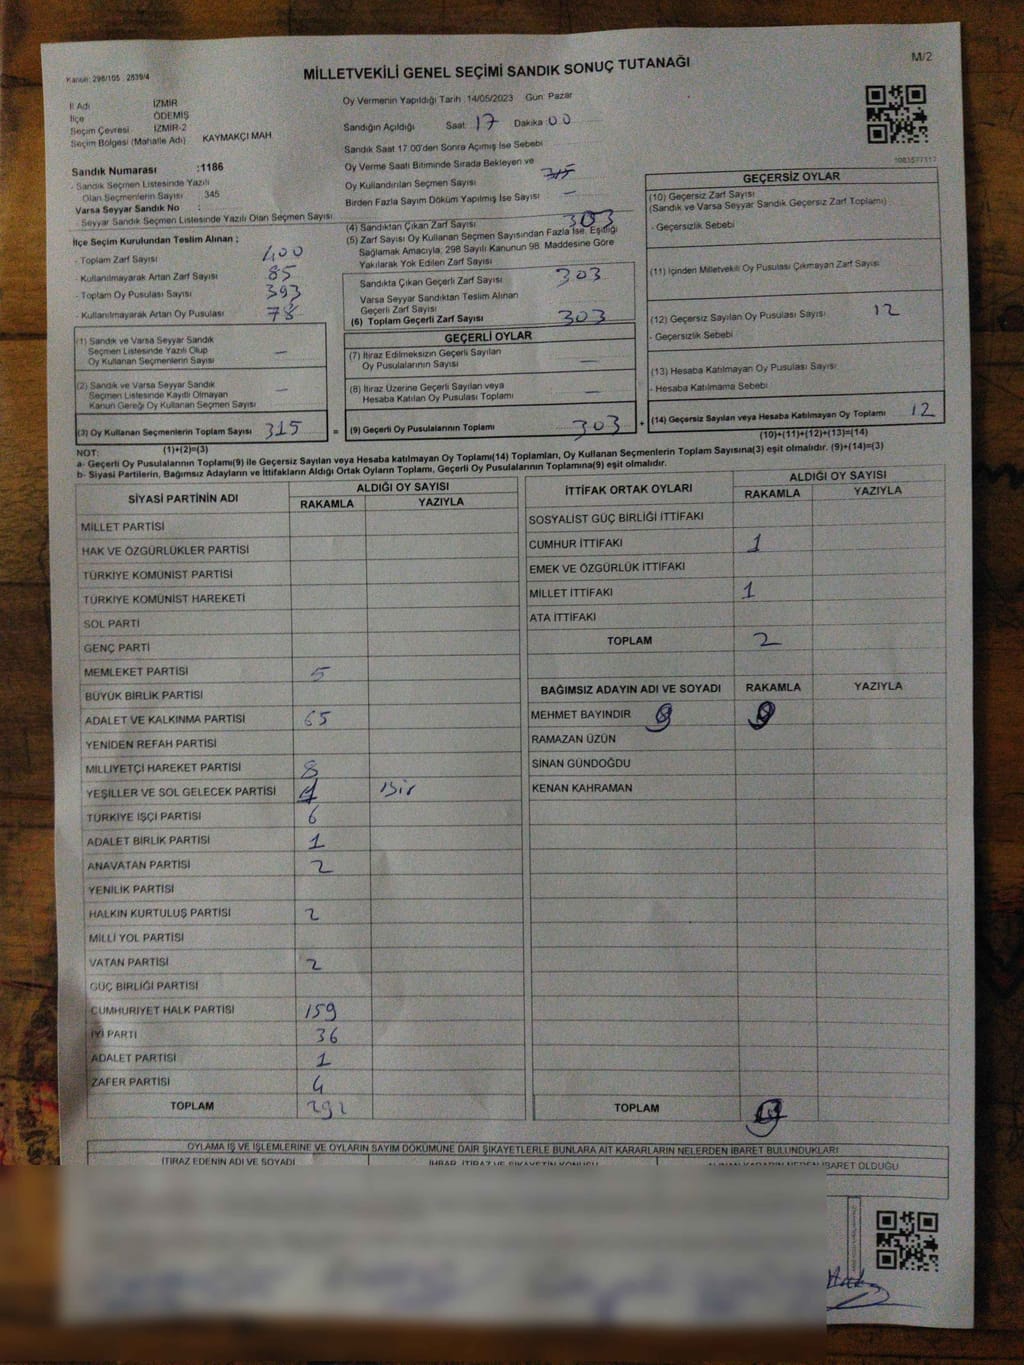 Kanun: 298/105 , 2839/4
MİLLETVEKİLİ GENEL SEÇİMİ SANDIK SONUÇ TUTANAĞI
M/2
İl Adı İZMİR
İlçe ÖDEMİŞ
Seçim Çevresi İZMİR-2
Seçim Bölgesi (Mahalle Adı) KAYMAKÇI MAH.
Sandık Numarası :1186
- Sandık Seçmen Listesinde Yazılı
Olan Seçmenlerin Sayısı : 345
Varsa Seyyar Sandık No :
- Seyyar Sandık Seçmen Listesinde Yazılı Olan Seçmen Sayısı
İlçe Seçim Kurulundan Teslim Alınan ;
- Toplam Zarf Sayısı 400
- Kullanılmayarak Artan Zarf Sayısı 85
- Toplam Oy Pusulası Sayısı 393
- Kullanılmayarak Artan Oy Pusulası 78
(1) Sandık ve Varsa Seyyar Sandık
Seçmen Listesinde Yazılı Olup
Oy Kullanan Seçmenlerin Sayısı –
(2) Sandık ve Varsa Seyyar Sandık
Seçmen Listesinde Kayıtlı Olmayan
Kanun Gereği Oy Kullanan Seçmen Sayısı –
(3) Oy Kullanan Seçmenlerin Toplam Sayısı 315
(1)+(2)=(3)
Oy Vermenin Yapıldığı Tarih :14/05/2023 Gün: Pazar
Sandığın Açıldığı Saat :17 Dakika :00
Sandık Saat 17:00'den Sonra Açılmış İse Sebebi
Oy Verme Saati Bitiminde Sırada Bekleyen ve
Oy Kullandırılan Seçmen Sayısı 315
Birden Fazla Sayım Döküm Yapılmış İse Sayısı –
(4) Sandıktan Çıkan Zarf Sayısı 303
(5) Zarf Sayısı Oy Kullanan Seçmen Sayısından Fazla İse, Eşitliği
Sağlamak Amacıyla, 298 Sayılı Kanunun 98. Maddesine Göre
Yakılarak Yok Edilen Zarf Sayısı
Sandıkta Çıkan Geçerli Zarf Sayısı 303
Varsa Seyyar Sandıktan Teslim Alınan
Geçerli Zarf Sayısı
(6) Toplam Geçerli Zarf Sayısı 303
GEÇERLİ OYLAR
(7) İtiraz Edilmeksizin Geçerli Sayılan
Oy Pusulalarının Sayısı –
(8) İtiraz Üzerine Geçerli Sayılan veya
Hesaba Katılan Oy Pusulası Toplamı –
= (9) Geçerli Oy Pusulalarının Toplamı 303 +
1083577117
GEÇERSİZ OYLAR
(10) Geçersiz Zarf Sayısı
(Sandık ve Varsa Seyyar Sandık Geçersiz Zarf Toplamı)
- Geçersizlik Sebebi
(11) İçinden Milletvekili Oy Pusulası Çıkmayan Zarf Sayısı
(12) Geçersiz Sayılan Oy Pusulası Sayısı 12
- Geçersizlik Sebebi
(13) Hesaba Katılmayan Oy Pusulası Sayısı
- Hesaba Katılmama Sebebi
(14) Geçersiz Sayılan veya Hesaba Katılmayan Oy Toplamı 12
(10)+(11)+(12)+(13)=(14)
NOT:
a- Geçerli Oy Pusulalarının Toplamı(9) ile Geçersiz Sayılan veya Hesaba katılmayan Oy Toplamı(14) Toplamları, Oy Kullanan Seçmenlerin Toplam Sayısına(3) eşit olmalıdır. (9)+(14)=(3)
b- Siyasi Partilerin, Bağımsız Adayların ve İttifakların Aldığı Ortak Oyların Toplamı, Geçerli Oy Pusulalarının Toplamına(9) eşit olmalıdır.
SİYASİ PARTİNİN ADI ALDIĞI OY SAYISI
RAKAMLA YAZIYLA
MİLLET PARTİSİ
HAK VE ÖZGÜRLÜKLER PARTİSİ
TÜRKİYE KOMÜNİST PARTİSİ
TÜRKİYE KOMÜNİST HAREKETİ
SOL PARTİ
GENÇ PARTİ
MEMLEKET PARTİSİ 5
BÜYÜK BİRLİK PARTİSİ
ADALET VE KALKINMA PARTİSİ 65
YENİDEN REFAH PARTİSİ
MİLLİYETÇİ HAREKET PARTİSİ 8
YEŞİLLER VE SOL GELECEK PARTİSİ 1 Bir
TÜRKİYE İŞÇİ PARTİSİ 6
ADALET BİRLİK PARTİSİ 1
ANAVATAN PARTİSİ 2
YENİLİK PARTİSİ
HALKIN KURTULUŞ PARTİSİ 2
MİLLİ YOL PARTİSİ
VATAN PARTİSİ 2
GÜÇ BİRLİĞİ PARTİSİ
CUMHURİYET HALK PARTİSİ 159
İYİ PARTİ 36
ADALET PARTİSİ 1
ZAFER PARTİSİ 4
TOPLAM 292
İTTİFAK ORTAK OYLARI ALDIĞI OY SAYISI
RAKAMLA YAZIYLA
SOSYALİST GÜÇ BİRLİĞİ İTTİFAKI
CUMHUR İTTİFAKI 1
EMEK VE ÖZGÜRLÜK İTTİFAKI
MİLLET İTTİFAKI 1
ATA İTTİFAKI
TOPLAM 2
BAĞIMSIZ ADAYIN ADI VE SOYADI RAKAMLA YAZIYLA
MEHMET BAYINDIR 9 9
RAMAZAN ÜZÜN
SİNAN GÜNDOĞDU
KENAN KAHRAMAN
TOPLAM 9
OYLAMA İŞ VE İŞLEMLERİNE VE OYLARIN SAYIM DÖKÜMÜNE DAİR ŞİKAYETLERLE BUNLARA AİT KARARLARIN NELERDEN İBARET BULUNDUKLARI
İTİRAZ EDENİN ADI VE SOYADI İHBAR, İTİRAZ VE ŞİKAYETİN KONUSU ALINAN KARARIN NEDEN İBARET OLDUĞU